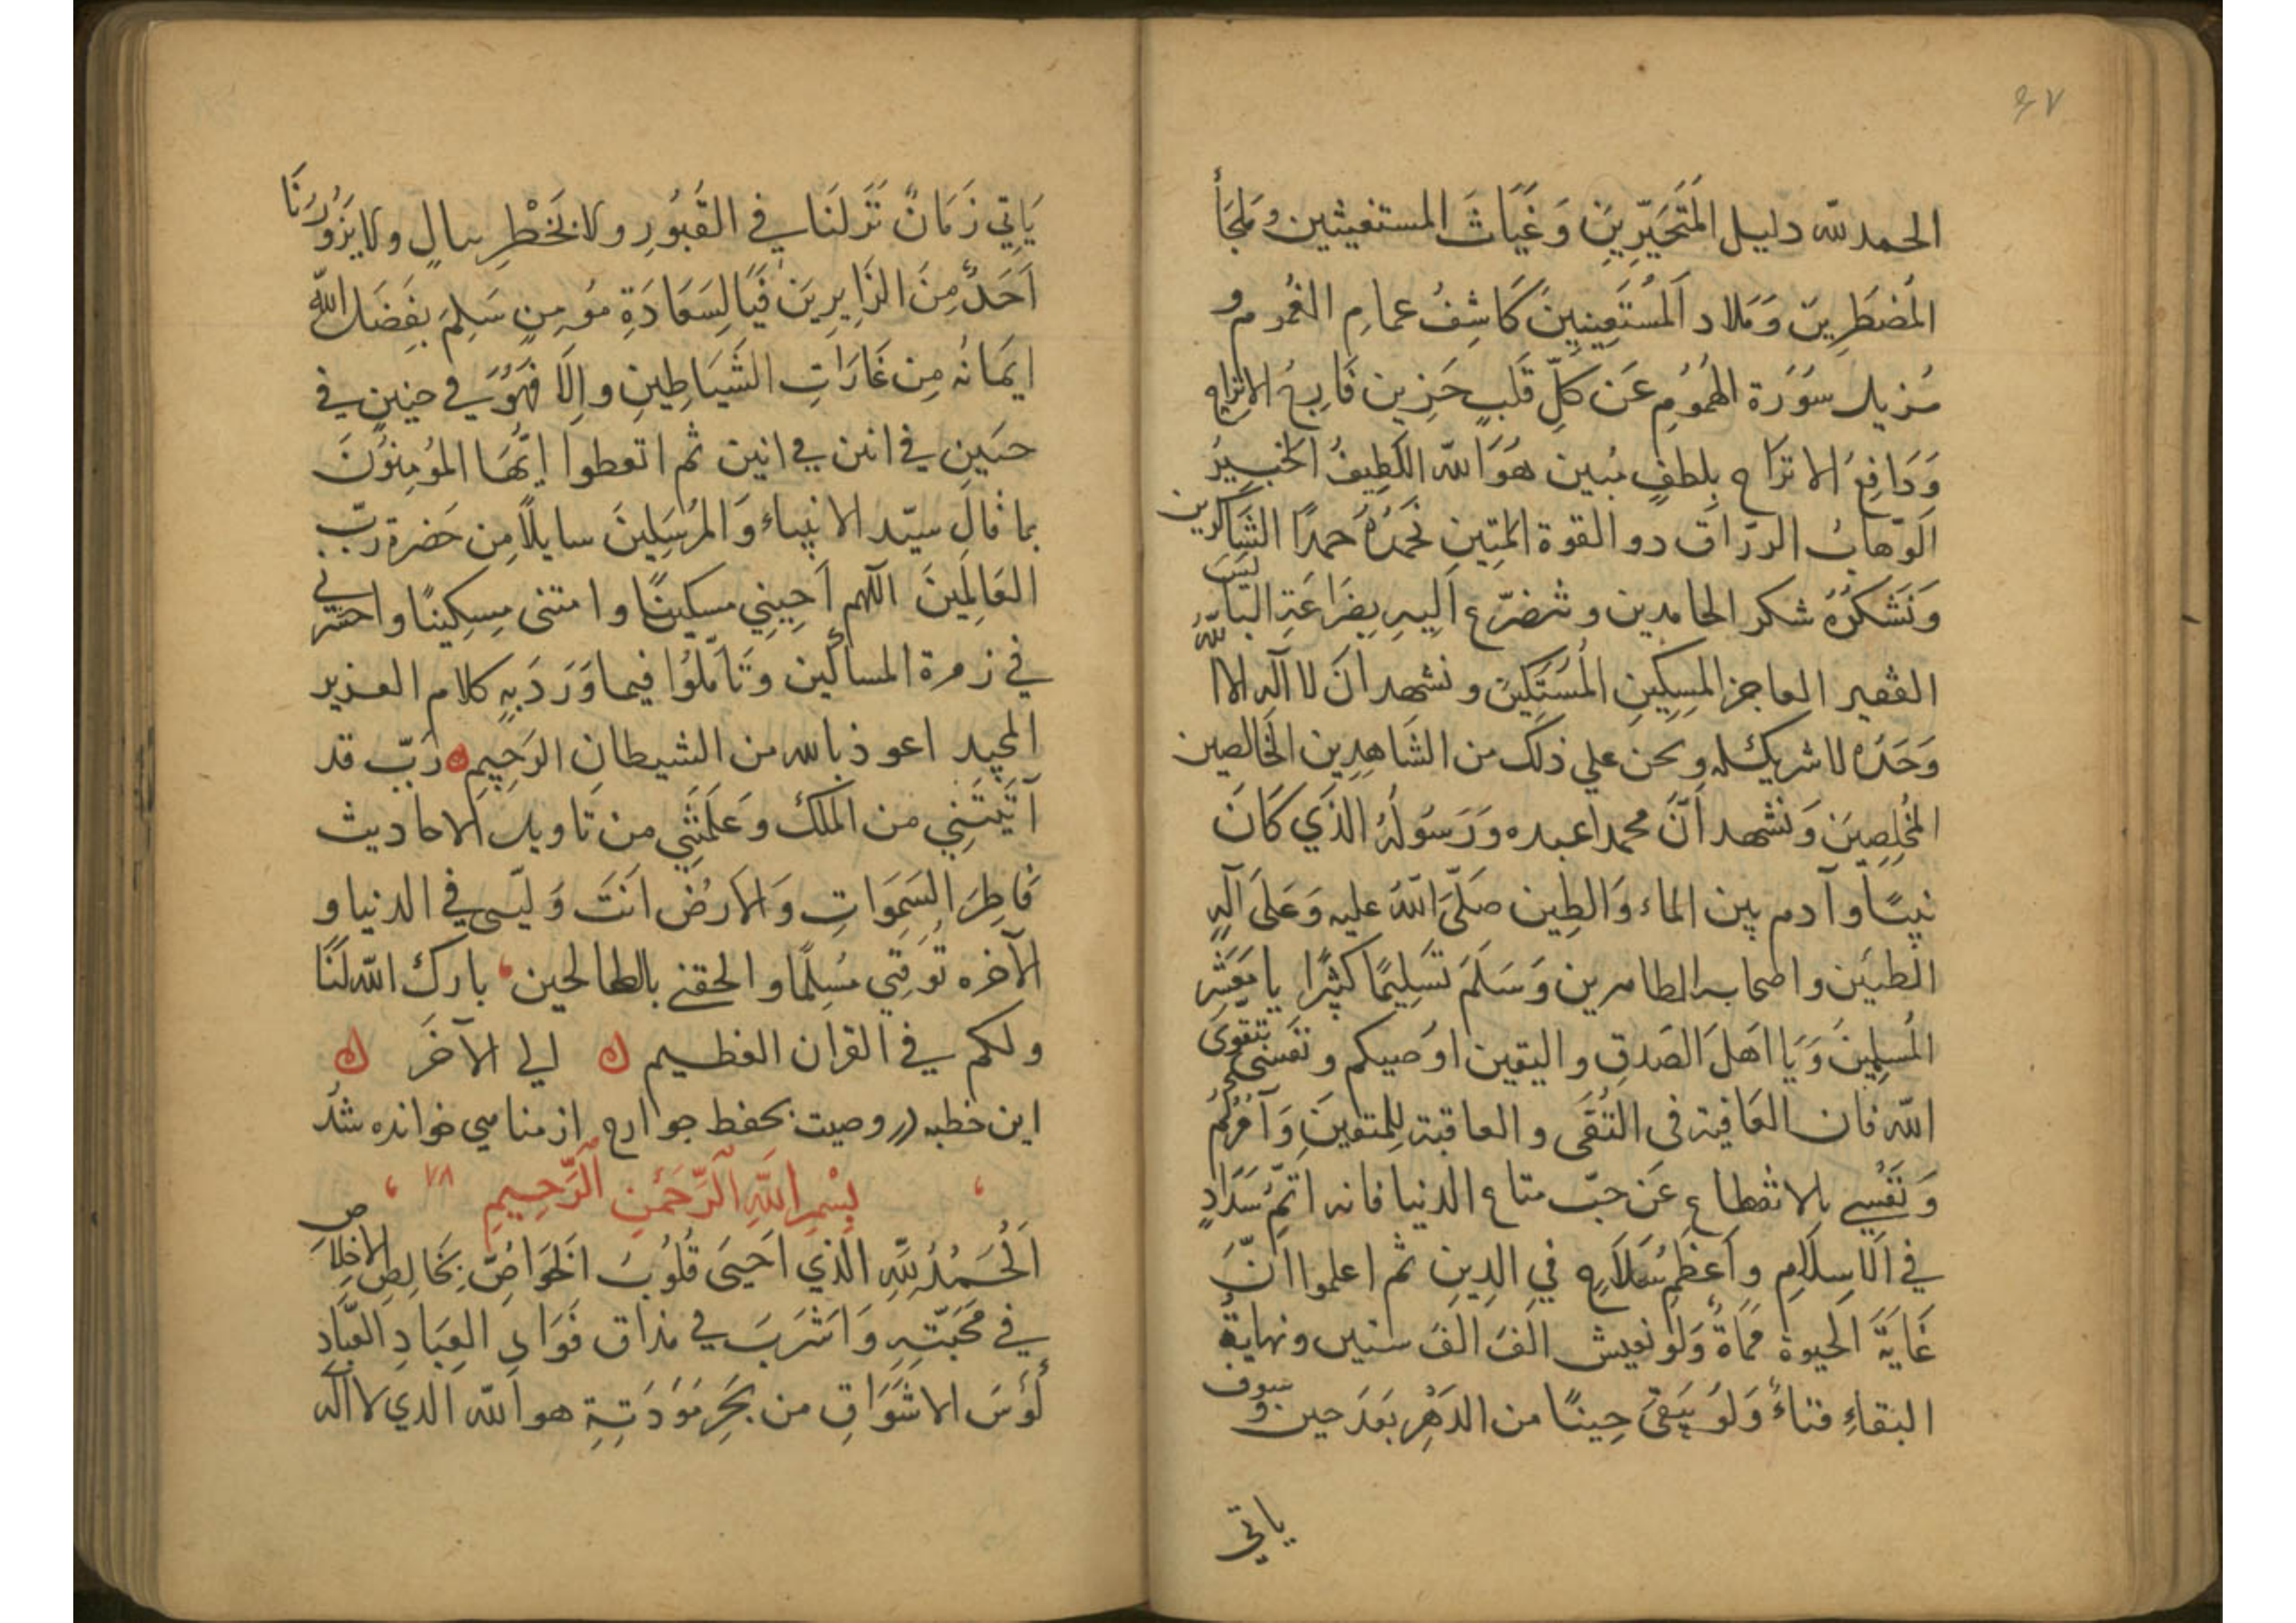 ٤٧
الحمد لله دليل المتَحَيِّرِينَ وَغَيَاثَ المستغيثين ومَلجَأ
المُضطَرِينَ وَمَلاد المُسْتَعِينِينَ كَاشِفُ عمامِ الغُموم و
مُزيل سَوْرَة الهُمُومِ عَن كلِّ قَلبٍ حَزِين قَارِعُ الاتراح
وَدَافِعُ الاتراح بِلطفٍ مُبين هُوَ الله اللَطِيفُ الخَبِيرُ
الوَهّابُ الرزّاق دو القوة المتِينِ نَحمَدُهُ حَمدًا الشَاكرين
وَنَشكُرُهُ شكر الحامدين ونتضرّع اليهِ بِضَرَاعَةِ البَآئِسِ
الفقير العاجز المِسكِينِ المُستَكِين ونشهد ان لا آله الا الله
وَحَدَهُ لا شريك له ونحن علي ذلك من الشَاهِدِين الخَالصين
المُخلِصِينَ وَنَشهد اَنَّ محمداعبده وَرَسُولُهُ الذَي كَانَ
نبيًّا وآدم بين الماء وَالطِين صَلّيَ اللهُ عليه وَعَلىَ آلهِ
الطيبَين واصحابه الطاهرين وَسَلَمَ تَسَلِيمًا كثيرًا يا مَعَشِر
المُسلِمِينَ وَيَا اهَلَ الصَدقِ واليقين اوُصيكم ونفسى بتقوى
الله فان العَافية فى التُقَى والعاقبة لِلمتقينَ وَآمُرُكُم
وَنَفسِي بالانقطاع عَن حبّ متاع الدنيا فانه اتمّ سَدَادٍ
في الاسلامِ واَعظَمُ سَلَاحٍ في الدِينِ ثم اعلموا انَّ
غَايَةَ الحيوة مَمَاةٌ وَلَو نعيش الفَ الفَ سنين ونهايةُ
البَقاءِ فناءٌ وَلَو يَبقىَ حِينًا من الدَهرِ بَعدَ حين وسوف
ياتي
يَاتِي زَمَانٌ نَزَلنَا في القُبُورِ ولا نَخْطِر ببالٍ ولا يَزُورُنَا
اَحَدٌ مِنَ الزَايِرِينَ فَيَا لِسَعَادَةِ مؤمِنٍ سَلِمَ بِفَضَل اللهِ
ايَمانُه مِن غَارَاتِ الشَيَاطِينِ واِلَا فَهُوَ في حنينٍ في
حنَينِ في انين في انين ثم اتعطوا ايُّهَا المؤمِنوُنَ
بما قالَ سيّد الانبياء وَالمُرسَلِينَ سايلًا مِن حَضرة ربّ
العَالمِينَ اللهم اَحِيِنِي مسكينًا وامتنى مِسكِينًا واحشرني
في زمرة المساكين وَتَامّلُوا فيما وَرَدَ بِهِ كلام العزيز
المجيد اعوذ بالله من الشيطانِ الرَجِيمِ ه رَبّ قد
آتَيَتَنِي من المُلك وَعَلَمَتَنِي من تاويل الاحاديث
فَاطِرَ السَمَوَاتِ وَالارضِ انَتَ وَليّى في الدنيا و
الآخره تَوَفَنِي مُسلِمًا والحقنے بالصالحين ، بارك الله لَنَا
ولكم في القران العظيم ه الي الآخَر ه
اين خطبه در وصيت بحفط جوارح از مناهي خوانده شدُ
، بِسْمِ اللَّهِ الرَّحْمَنِ الرَّحِيمِ ٧٨ ،
اَلحَمدُ لِلّهِ الَذي احَيَى قُلُوبَ الخَوَاصّ بِخَالِصِ الاخلَاص
في مَحَبّتِهِ وَاَشرَبَ في مذاق العِبَادِ العُبّاد
لُؤُسَ الاشَوَاقِ من بَحَرِ مَوَدَتِهِ هو الله الذي لا اله